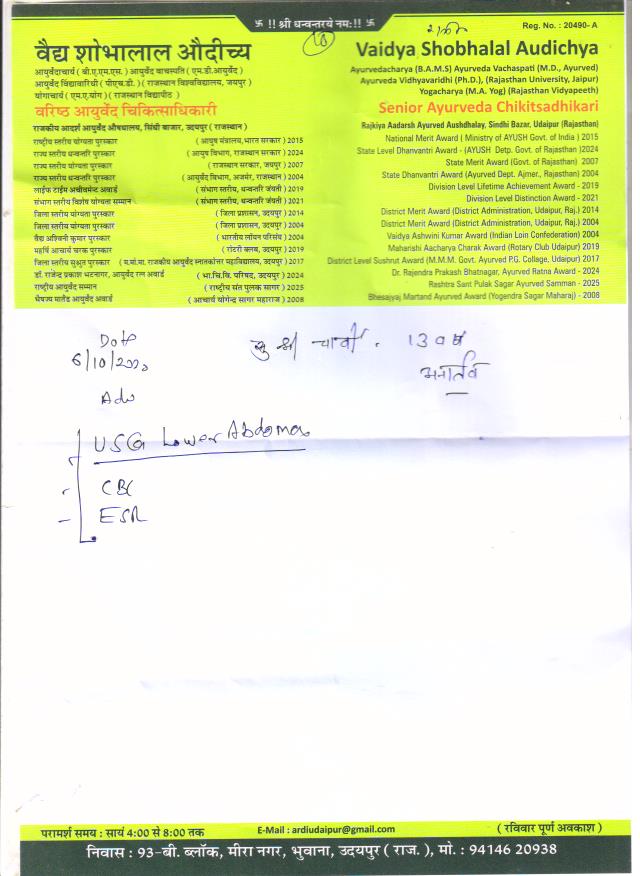 卐 !! श्री धन्वन्तरये नमः !! 卐
Reg. No. : 20490- A
वैद्य शोभालाल औदीच्य
आयुर्वेदाचार्य ( बी.ए.एम.एस. ) आयुर्वेद वाचस्पति ( एम.डी.आयुर्वेद )
आयुर्वेद विद्यावारिधी ( पीएच.डी. ) ( राजस्थान विश्वविद्यालय, जयपुर )
योगाचार्य ( एम.ए.योग ) ( राजस्थान विद्यापीठ )
वरिष्ठ आयुर्वेद चिकित्साधिकारी
राजकीय आदर्श आयुर्वेद औषधालय, सिंधी बाजार, उदयपुर ( राजस्थान )
राष्ट्रीय स्तरीय योग्यता पुरस्कार ( आयुष मंत्रालय, भारत सरकार ) 2015
राज्य स्तरीय धन्वन्तरि पुरस्कार ( आयुष विभाग, राजस्थान सरकार ) 2024
राज्य स्तरीय योग्यता पुरस्कार ( राजस्थान सरकार, जयपुर ) 2007
राज्य स्तरीय धन्वन्तरि पुरस्कार ( आयुर्वेद विभाग, अजमेर, राजस्थान ) 2004
लाईफ टाईम अचीवमेन्ट अवार्ड ( संभाग स्तरीय, धन्वन्तरि जंयती ) 2019
संभाग स्तरीय विशेष योग्यता सम्मान ( संभाग स्तरीय, धन्वन्तरि जंयती ) 2021
जिला स्तरीय योग्यता पुरस्कार ( जिला प्रशासन, उदयपुर ) 2014
जिला स्तरीय योग्यता पुरस्कार ( जिला प्रशासन, उदयपुर ) 2004
वैद्य अश्विनी कुमार पुरस्कार ( भारतीय लॉयन परिसंघ ) 2004
महर्षि आचार्य चरक पुरस्कार ( रोटरी क्लब, उदयपुर ) 2019
जिला स्तरीय सुश्रुत पुरस्कार ( म.मो.मा. राजकीय आयुर्वेद स्नातकोत्तर महाविद्यालय, उदयपुर ) 2017
डॉ. राजेन्द्र प्रकाश भटनागर, आयुर्वेद रत्न अवार्ड ( भा.चि.वि. परिषद, उदयपुर ) 2024
राष्ट्रीय आयुर्वेद सम्मान ( राष्ट्रीय संत पुलक सागर ) 2025
भैषज्य मार्तंड आयुर्वेद अवार्ड ( आचार्य योगेन्द्र सागर महाराज ) 2008
Vaidya Shobhalal Audichya
Ayurvedacharya (B.A.M.S) Ayurveda Vachaspati (M.D., Ayurved)
Ayurveda Vidhyavaridhi (Ph.D.), (Rajasthan University, Jaipur)
Yogacharya (M.A. Yog) (Rajasthan Vidyapeeth)
Senior Ayurveda Chikitsadhikari
Rajkiya Aadarsh Ayurved Aushdhalay, Sindhi Bazar, Udaipur (Rajasthan)
National Merit Award ( Ministry of AYUSH Govt. of India ) 2015
State Level Dhanvantri Award - (AYUSH Detp. Govt. of Rajasthan )2024
State Merit Award (Govt. of Rajasthan) 2007
State Dhanvantri Award (Ayurved Dept. Ajmer., Rajasthan) 2004
Division Level Lifetime Achievement Award - 2019
Division Level Distinction Award - 2021
District Merit Award (District Administration, Udaipur, Raj.) 2014
District Merit Award (District Administration, Udaipur, Raj.) 2004
Vaidya Ashwini Kumar Award (Indian Loin Confederation) 2004
Maharishi Aacharya Charak Award (Rotary Club Udaipur) 2019
District Level Sushrut Award (M.M.M. Govt. Ayurved P.G. Collage, Udaipur) 2017
Dr. Rajendra Prakash Bhatnagar, Ayurved Ratna Award - 2024
Rashtra Sant Pulak Sagar Ayurved Samman - 2025
Bhesajyaj Martand Ayurved Award (Yogendra Sagar Maharaj) - 2008
सु श्री चार्वी . 13 वर्ष
अनार्तव
6/10/
Adv
USG Lower Abdomen
CBC
ESR
परामर्श समय : सायं 4:00 से 8:00 तक
E-Mail : ardiudaipur@gmail.com
( रविवार पूर्ण अवकाश )
निवास : 93-बी. ब्लॉक, मीरा नगर, भुवाना, उदयपुर ( राज. ), मो. : 94146 20938